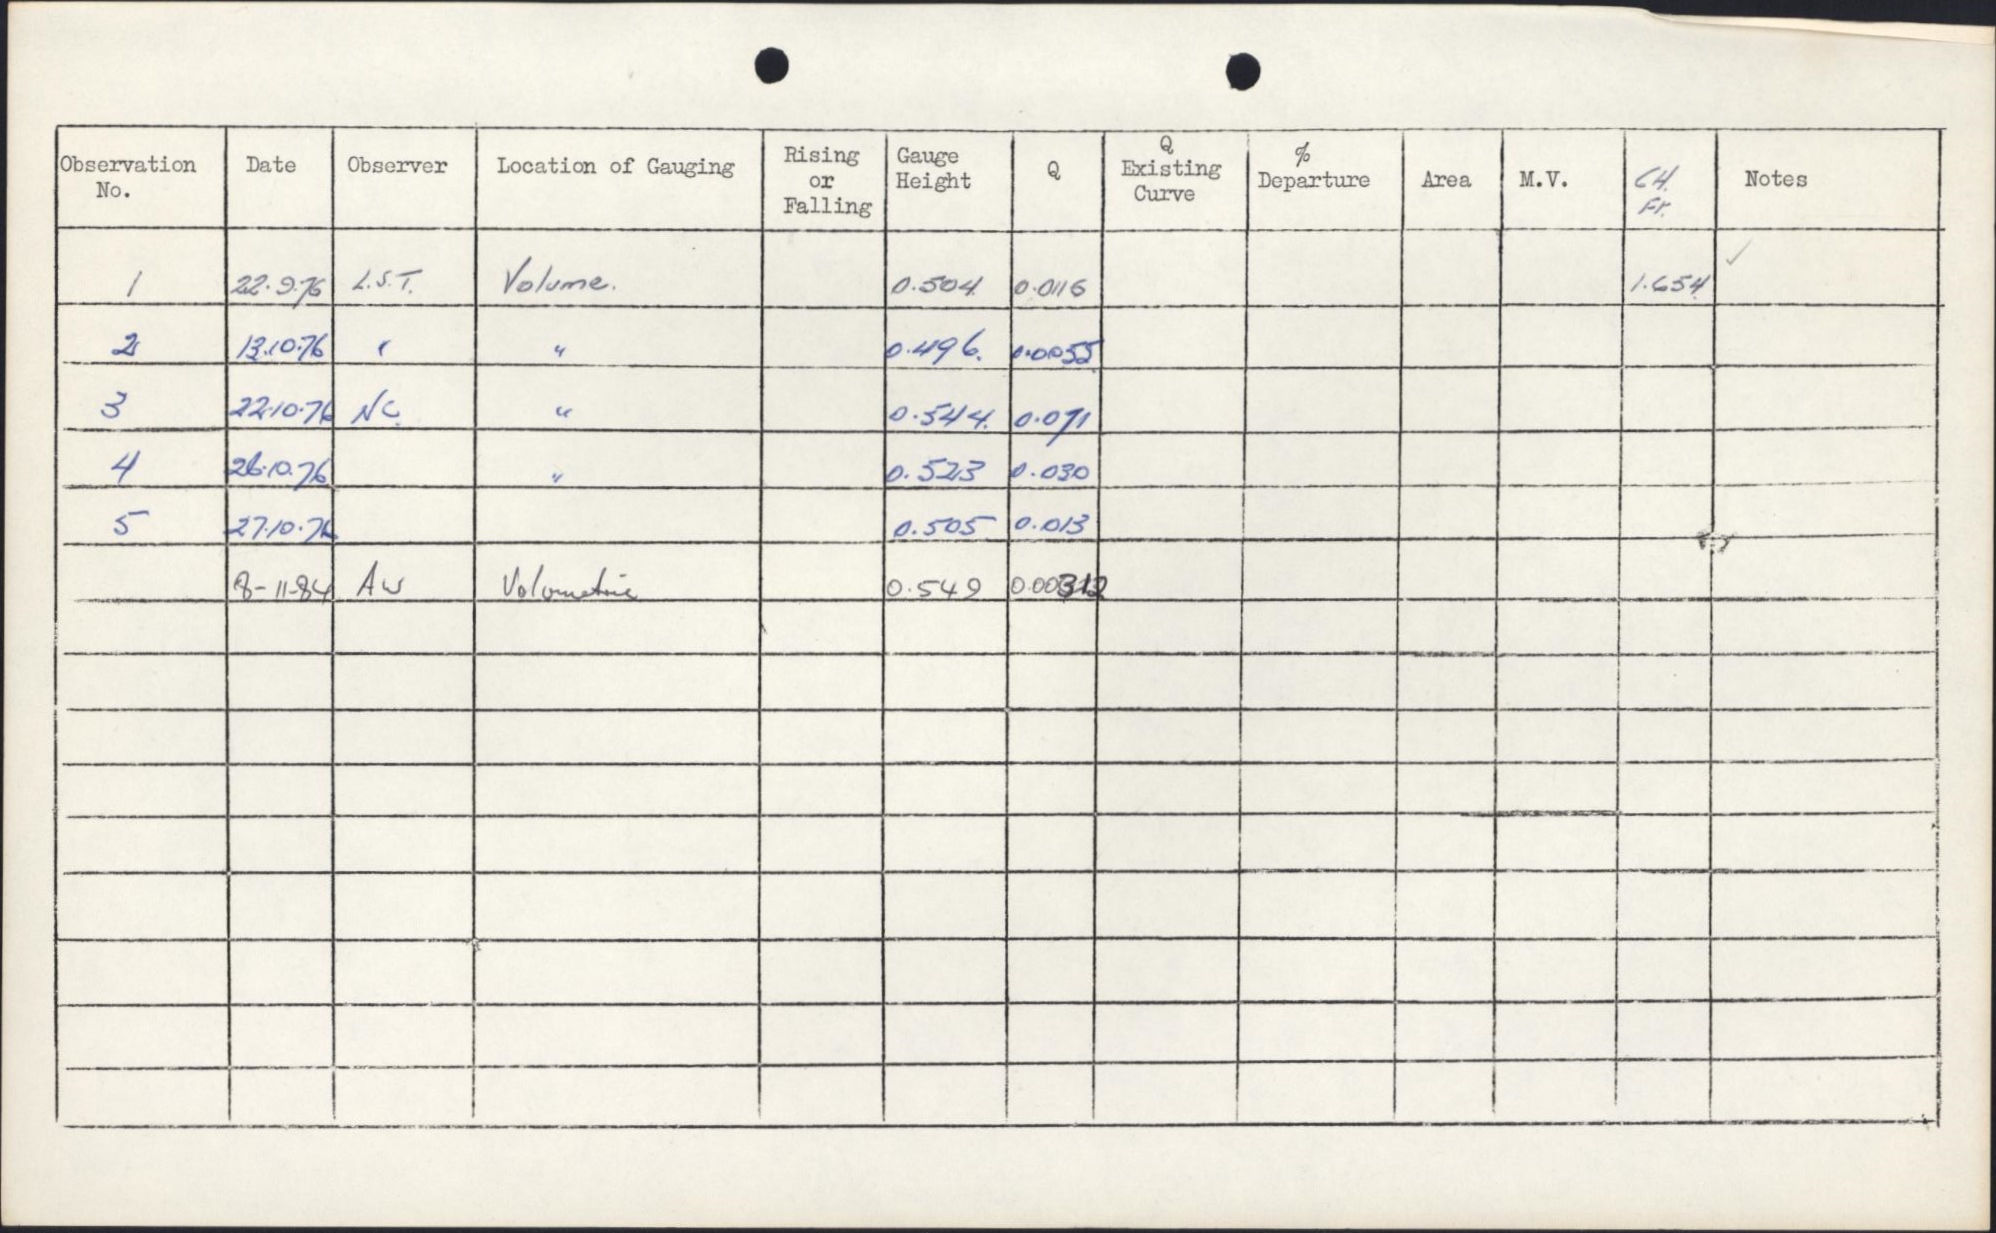 Observation No. Date Observer Location of Gauging Rising or Falling Gauge Height Q Q Existing Curve % Departure Area M.V. CH. Fr. Notes
1 22.9.76 L.S.T. Volume. 0.504 0.0116 1.654 ✓
2 13.10.76 " " 0.496. 0.0055
3 22.10.76 NC. " 0.544. 0.071
4 26.10.76 " 0.523 0.030
5 27.10.76 0.505 0.013
8-11-84 AW Volumetric 0.549